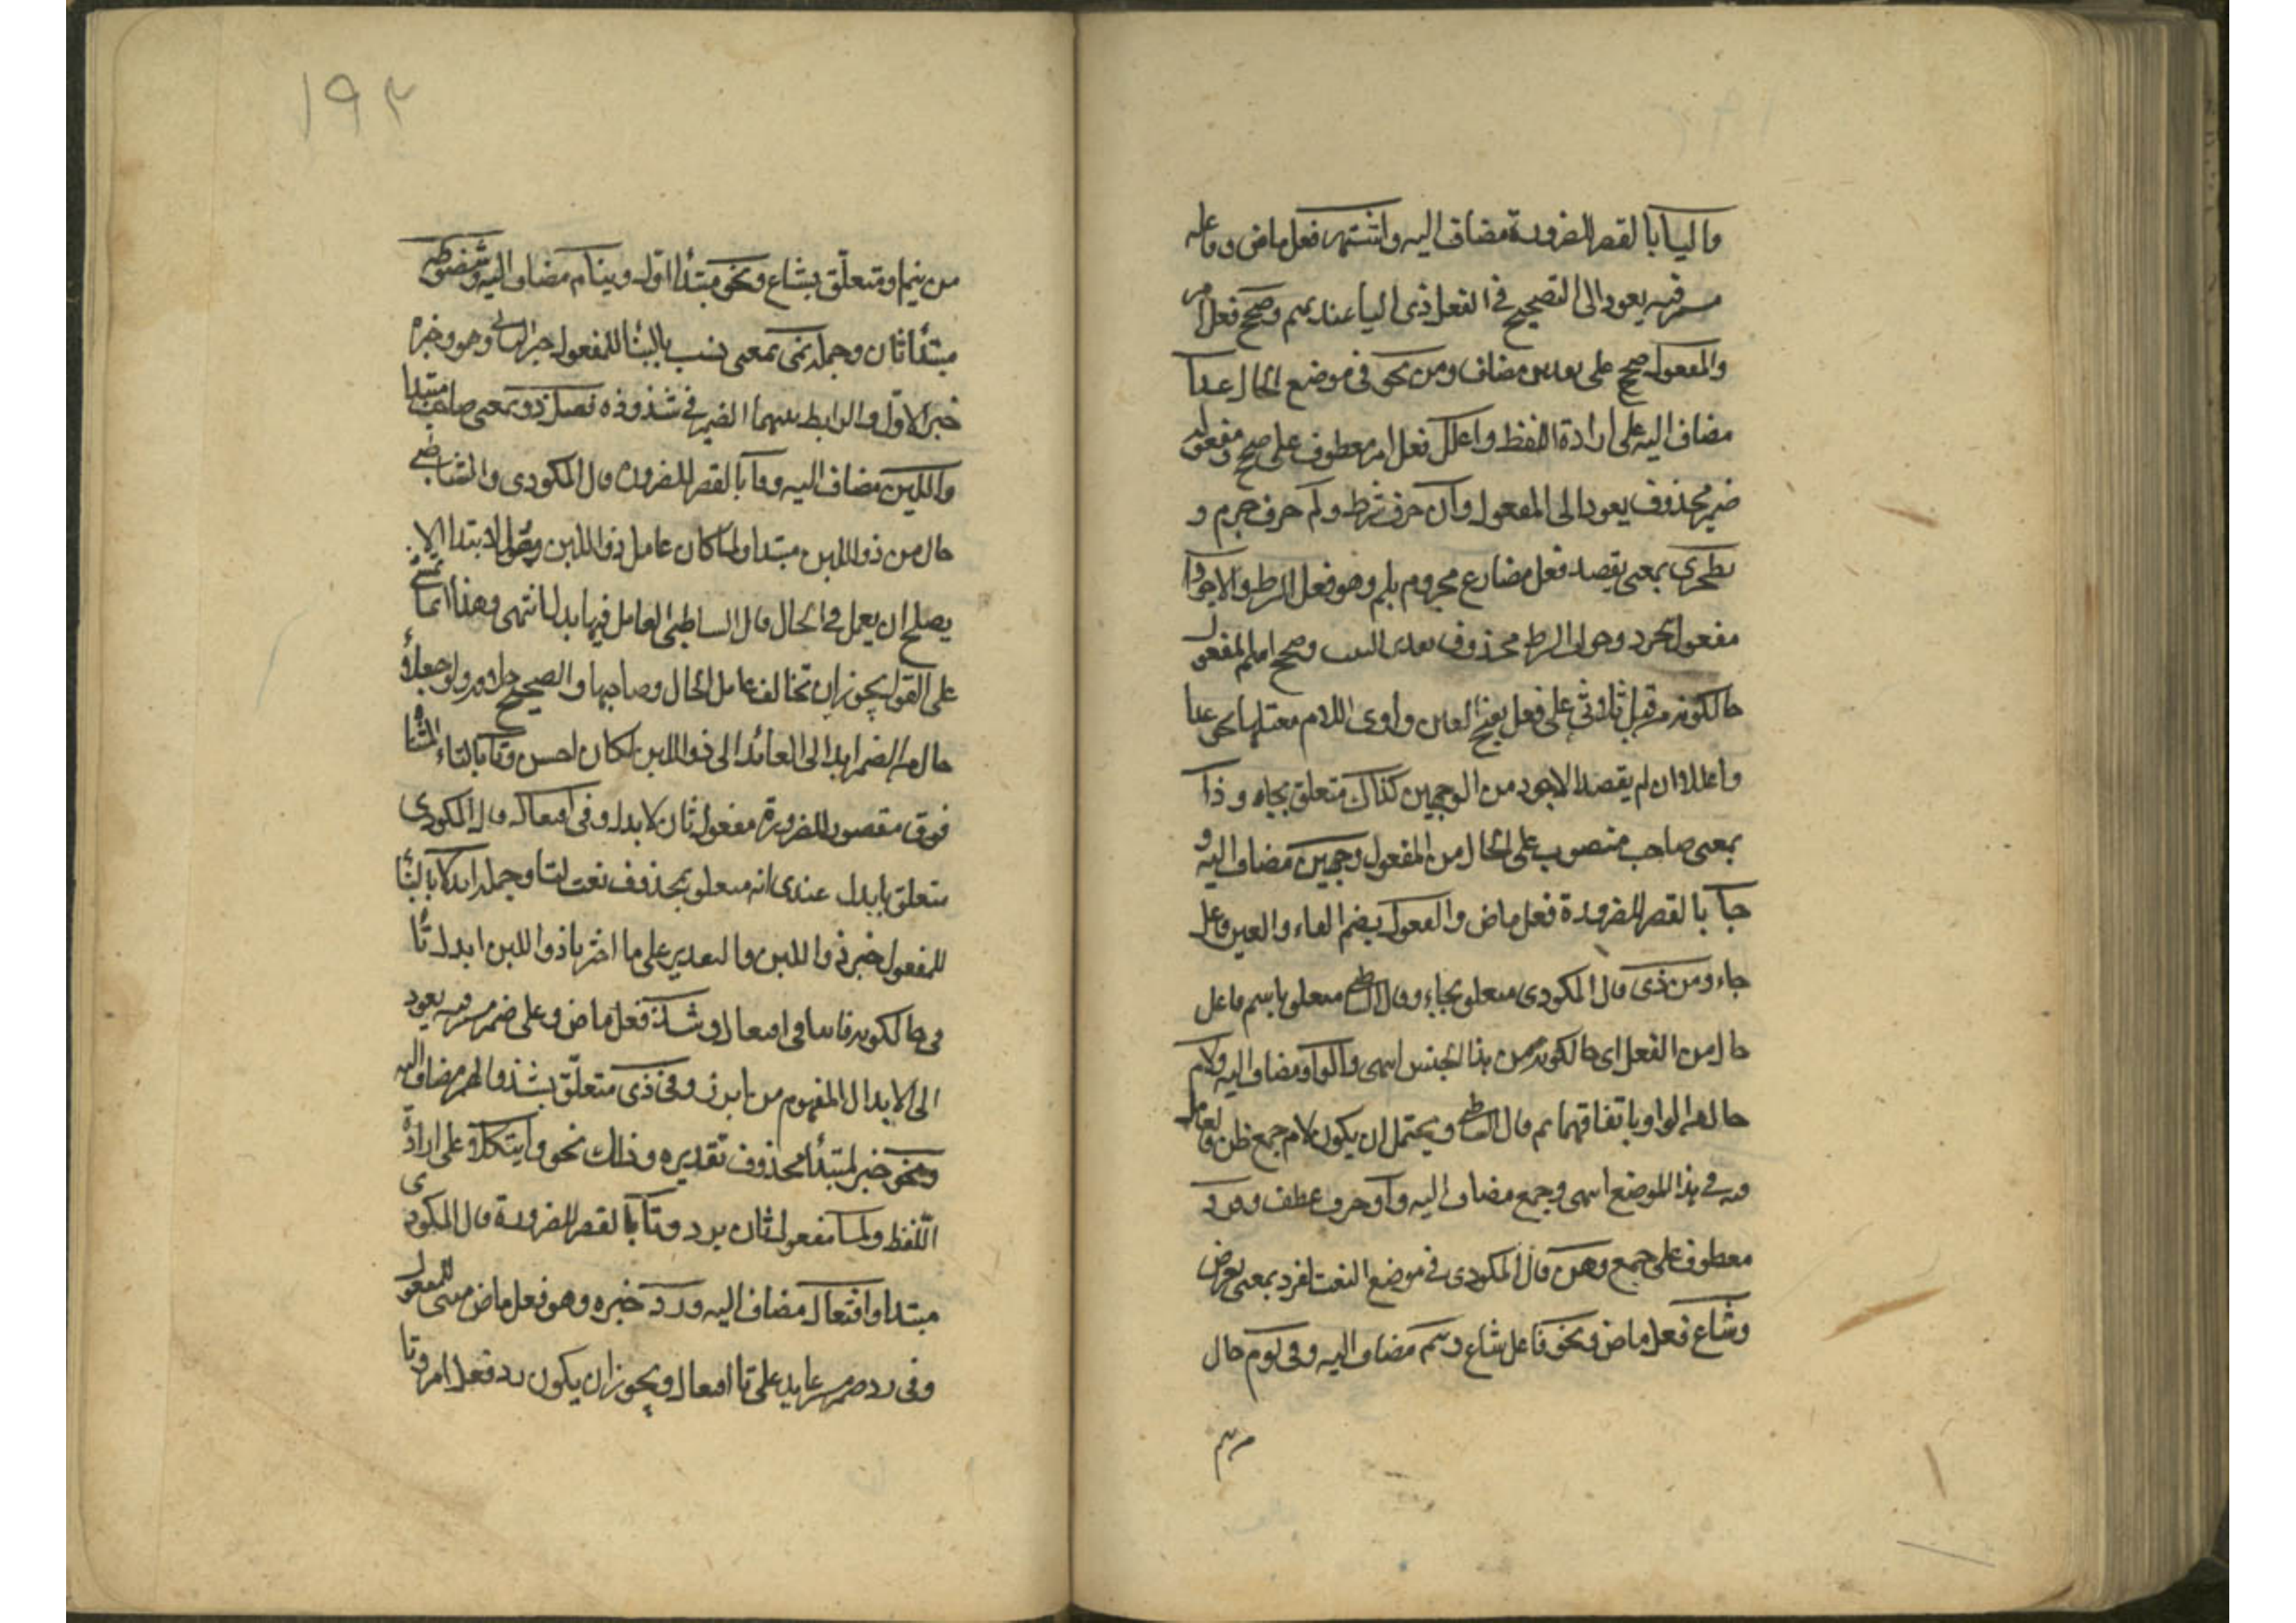 واليا بالقصر للضرورة مضاف اليه واشتهر فعل ماض وفاعله
مستتر فيه يعود الى التصحيح في الفعل ذي اليا عند تميم وصحح فعل امر
والمفعول صحح على تقدير مضاف ومن نحو في موضع الحال عدا
مضاف اليه على ارادة اللفظ واعلل فعل امر معطوف على صحح ومفعوله
ضمير محذوف يعود الى المفعول وان حرف شرط ولم حرف جزم و
تتحرى بمعنى يقصد فعل مضارع مجزوم بلم وهو فعل الشرط والاجودا
مفعول تتحر وجواب الشرط محذوف تقدير البيت وصحح اسم المفعول
حالكونه من قبل ثلاثي على فعل بفتح العين واوى اللام معتلها نحو عدا
واعلل ان لم يقصد الاجود من الوجهين كذاك متعلق بجاء وذا
بمعنى صاحب منصوب على الحال من المفعول وجهين مضاف اليه و
جا بالقصر للضرورة فعل ماض والفعول بضم الفاء والعين فاعل
جاء ومن ذي قال المكودي متعلق بجاء وقال الشاطبي متعلق باسم فاعل
حال من الفعل اى حالكونه من هذا الجنس اسمى والواو مضاف اليه ولام
حال من الواو باتفاقهما ثم قال الشاطبي ويحتمل ان يكون لام جمع ظرف والعامل
فيه في هذا الموضع اسمى وجمع مضاف اليه واو حرف عطف وفرد
معطوف على جمع وهن قال المكودي في موضع النعت لفرد بمعنى يعرض
وشاع فعل ماض ونحو فاعل شاع ونيم مضاف اليه وفي نوم حال
١٩٢
من نيم او متعلق بشاع ونحو مبتدأ اول ونيام مضاف اليه وشذوذه
مبتدأ ثان وجملة نمى بمعنى نسب بالبنا للمفعول خبر الثاني وهو وخبره
خبر الاول والرابط بينهما الضمير في شذوذه فصل ذو بمعنى صاحب مبتدا
واللين مضاف اليه وفا بالقصر للضرورة قال المكودي والشاطبي
حال من ذو اللين مبتدا ولما كان عامل ذو اللين وهو الابتدا لا
يصلح ان يعمل في الحال قال الشاطبي العامل فيها ابدل انتهى وهذا انما يتمشى
على القول بجوز ان تخالف عامل الحال وصاحبها والصحيح خلافه ولو جعلا
حال من الضمير ابدل العائد الى ذو اللين لكان احسن وتا بالتاء المثناة
فوق مقصور للضرورة مفعول ثان لابدل وفي افتعال قال المكودي
متعلق بابدل عندي انه متعلق بمحذوف نعت لتا وجملة ابدلا بالبنا
للمفعول خبر ذو اللين والتقدير على ما اخترنا ذو اللين ابدل تا
في حالكونه فاء في افتعال وشذ فعل ماض وعلى ضمير مستتر فيه يعود
الى الابدال المفهوم من ابدل وفي ذي متعلق بشذ والهمز مضاف اليه
ونحو خبر لمبتدأ محذوف تقديره وذلك نحو وايتكلا على ارادة
اللفظ ولما مفعول ثان برد وتا بالقصر للضرورة قال المكودي
مبتدا وافتعال مضاف اليه ورد خبره وهو فعل ماض مبنى للمفعول
وفي رد ضمير عايد على تا افتعال ويجوز ان يكون رد فعل امر وتا